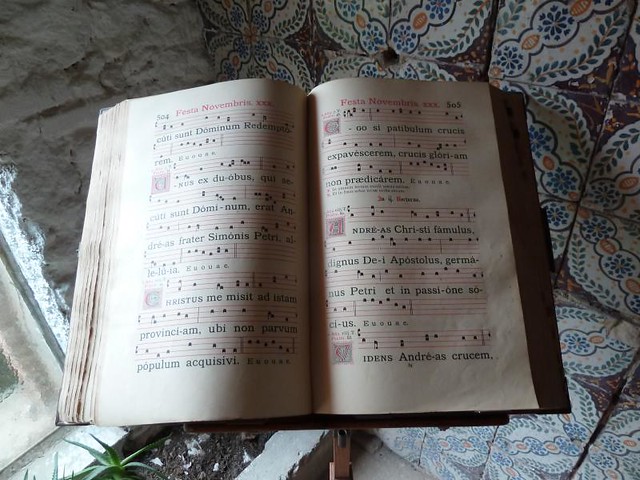 504 Festa Novembris. xxx.
cúti sunt Dóminum Redempto-
rem. Euouae.
U-NUS ex du-óbus, qui se-
cúti sunt Dómi-num, erat An-
dré-as frater Simónis Petri, al-
le-lú-ia. Euouae.
CHRISTUS me misit ad istam
provínci-am, ubi non parvum
pópulum acquisívi. Euouae.
Festa Novembris. xxx. 505
E-GO si patíbulum crucis
expavéscerem, crucis glóri-am
non prædicárem. Euouae.
In ij. Vesperas.
ANDRÉ-AS Chri-sti fámulus,
dignus De-i Apóstolus, germá-
nus Petri et in passi-óne só-
ci-us. Euouae.
VIDENS André-as crucem,